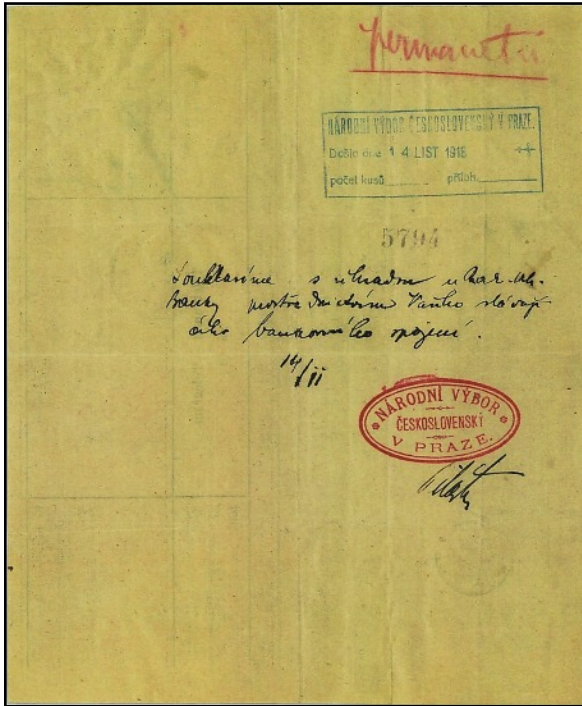 NÁRODNÍ VÝBOR ČESKOSLOVENSKÝ V PRAZE.
Došlo dne 14 LIST 1918
počet kusů příloh
5794
Souhlasíme s úhradou u
banky prostřednictvím Vašeho stávají-
cího bankovního spojení.
14/11
NÁRODNÍ VÝBOR
ČESKOSLOVENSKÝ
V PRAZE.